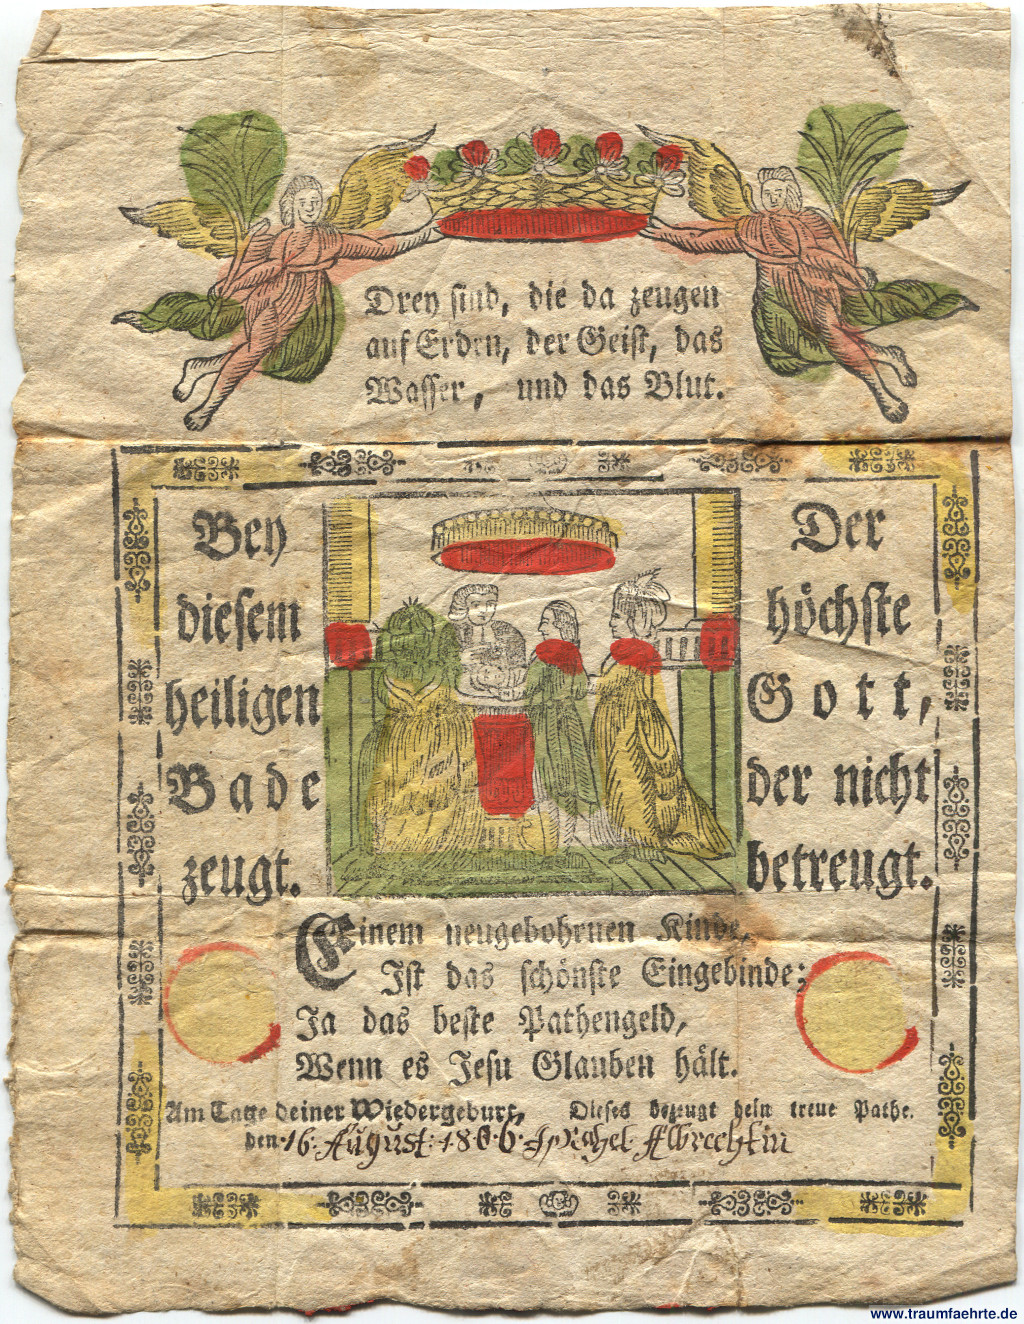 Drey sind, die da zeugen
auf Erden, der Geist, das
Wasser, und das Blut.
Bey
diesem
heiligen
Bade
zeugt.
Der
höchste
Gott,
der nicht
betreugt.
Einem neugebohrnen Kinde,
Ist das schönste Eingebinde;
Ja das beste Pathengeld,
Wenn es Jesu Glauben hält.
Am Tage deiner Wiedergeburt, Dieses bezeugt dein treue Pathe.
den 16. August: 1806 Albrechtin
www.traumfaehrte.de